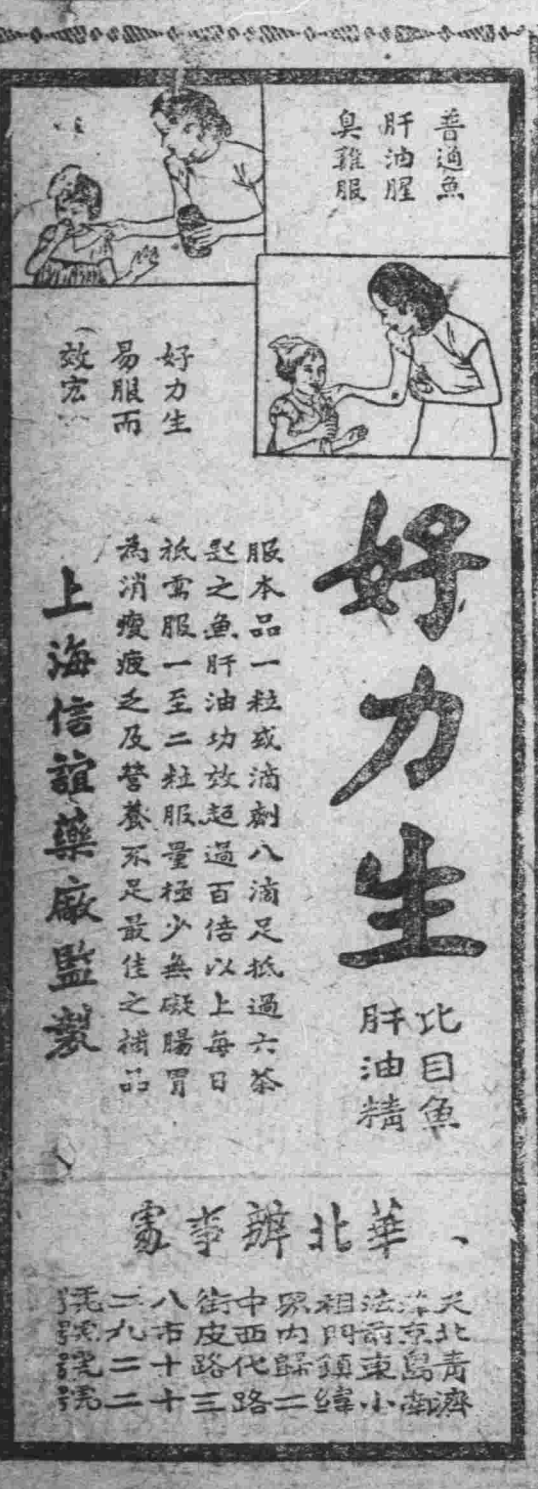 普通魚
肝油腥
臭難服
好力生
易服而
效宏
好力生
比目魚
肝油精
服本品一粒或滴劑八滴足抵過六茶
匙之魚肝油功效超過百倍以上每日
祇需服一至二粒服量極少無礙腸胃
為消瘦疲乏及營養不足最佳之補品
上海信誼藥廠監製
華北辦事處
天津法租界中街八二號
北京前門內西皮市九號
青島東鎮歸化路十二號
濟南小緯二路三十二號